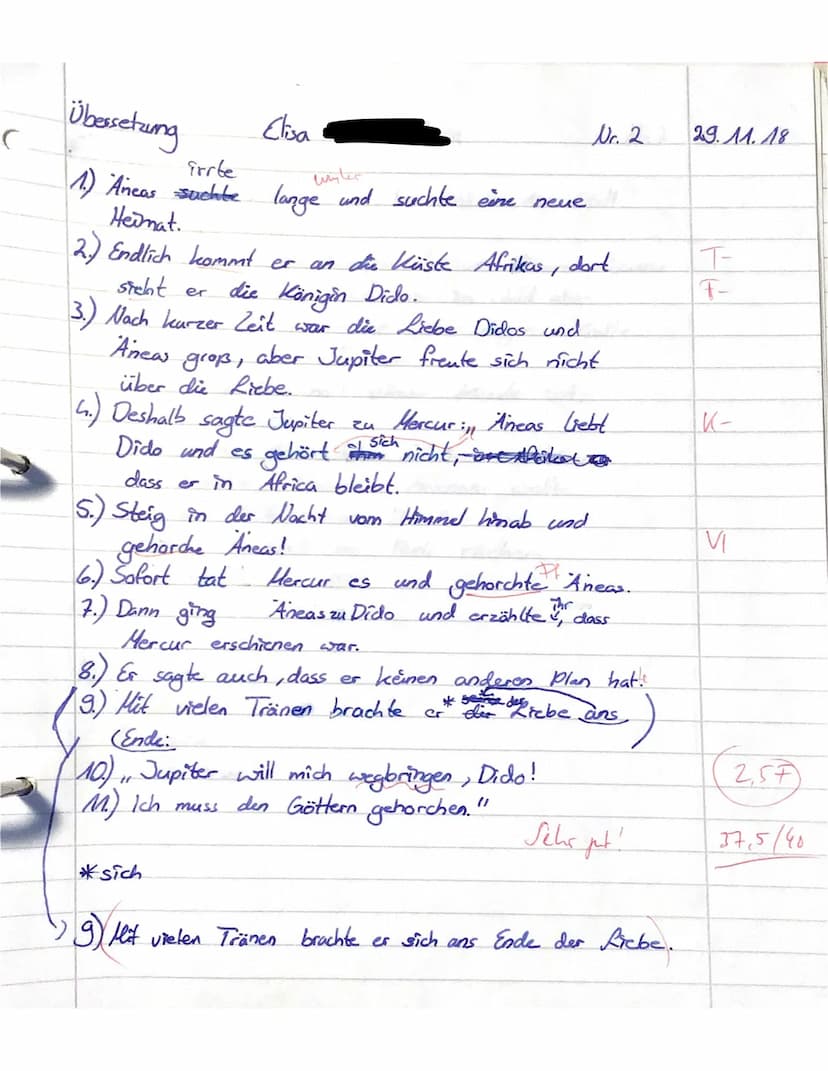 Übersetzung Elisa Nr. 2 29.11.18
irrte
1.) Äneas suchte lange und suchte eine neue
Heimat.
2.) Endlich kommt er an die Küste Afrikas, dort T-
sieht er die Königin Dido. T-
3.) Nach kurzer Zeit war die Liebe Didos und
Äneas groß, aber Jupiter freute sich nicht
über die Liebe.
4.) Deshalb sagte Jupiter zu Mercur: „Äneas liebt K-
Dido und es gehört sich nicht,
dass er in Africa bleibt.
5.) Steig in der Nacht vom Himmel hinab und
gehorche Äneas! VI
6.) Sofort tat Mercur es und gehorchte Äneas.
7.) Dann ging Äneas zu Dido und erzählte ihr, dass
Mercur erschienen war.
8.) Er sagte auch, dass er keinen anderen Plan hat.
9.) Mit vielen Tränen brachte er * der Liebe ans
(Ende.
10.) „Jupiter will mich wegbringen, Dido! 2,57
11.) Ich muss den Göttern gehorchen."
Sehr gut! 37,5/40
* sich
9) Mit vielen Tränen brachte er sich ans Ende der Liebe.